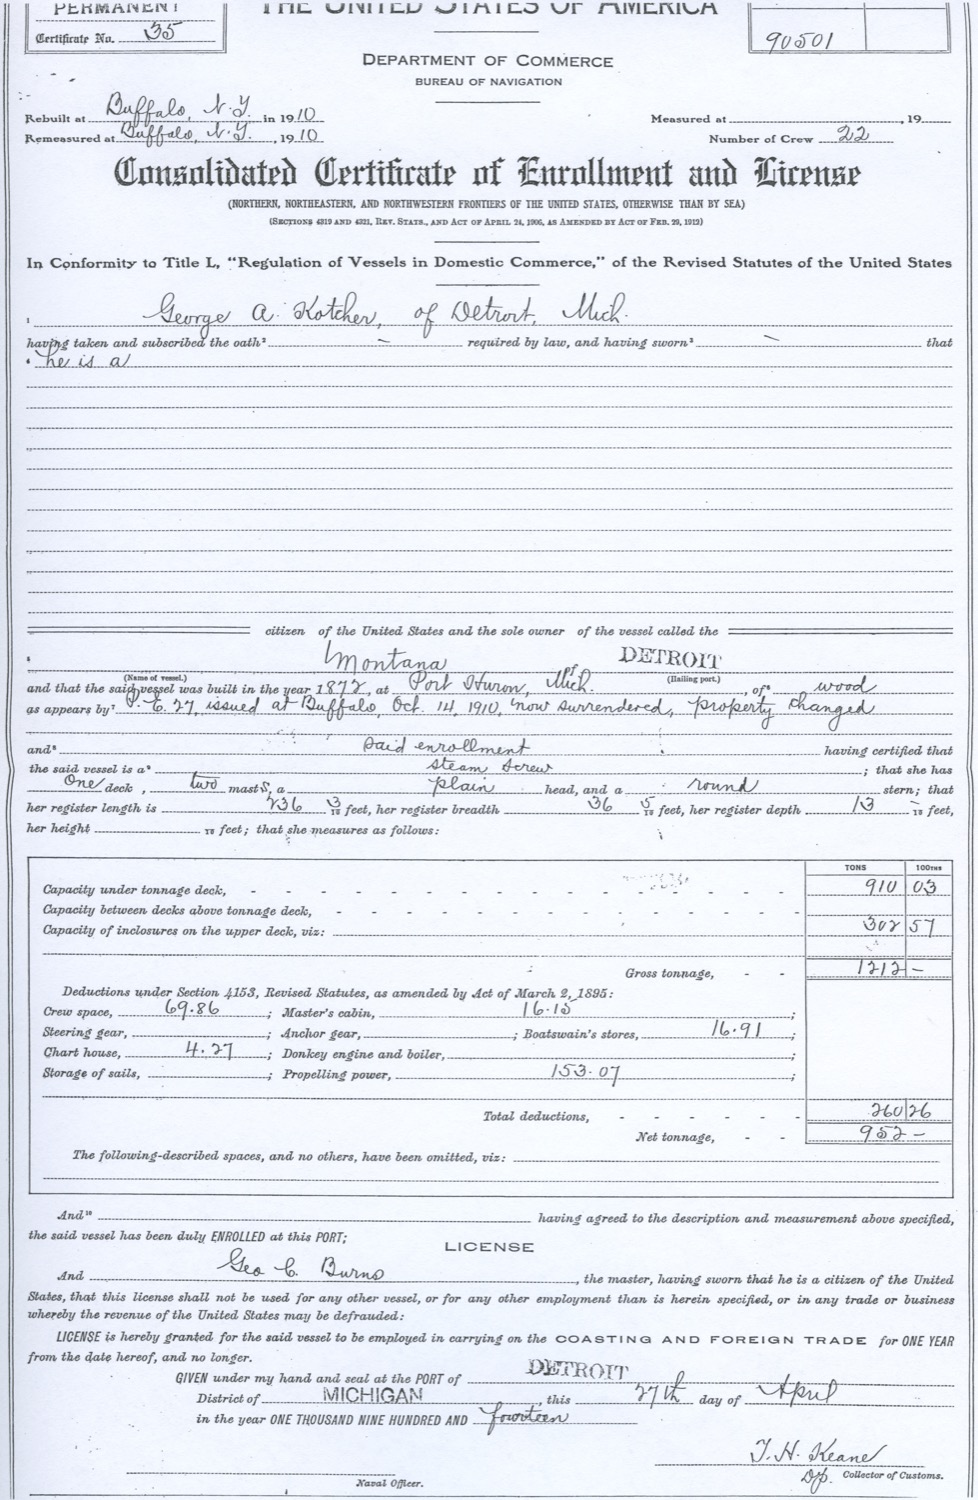 PERMANENT
Certificate No. 35
THE UNITED STATES OF AMERICA
90501
DEPARTMENT OF COMMERCE
BUREAU OF NAVIGATION
Rebuilt at Buffalo, N.Y. in 1910
Measured at , 19
Remeasured at Buffalo, N.Y. , 1910
Number of Crew 22
Consolidated Certificate of Enrollment and License
(NORTHERN, NORTHEASTERN, AND NORTHWESTERN FRONTIERS OF THE UNITED STATES, OTHERWISE THAN BY SEA)
(SECTIONS 4319 AND 4321, REV. STATS., AND ACT OF APRIL 24, 1906, AS AMENDED BY ACT OF FEB. 29, 1912)
In Conformity to Title L, "Regulation of Vessels in Domestic Commerce," of the Revised Statutes of the United States
1 George A. Kotcher, of Detroit, Mich.
having taken and subscribed the oath² – required by law, and having sworn³ – that
⁴ he is a
citizen of the United States and the sole owner of the vessel called the
Montana of DETROIT
(Name of vessel.) (Hailing port.)
and that the said vessel was built in the year 1872, at Port Huron, Mich. , of⁶ wood
as appears by⁷ P. E. 27, issued at Buffalo, Oct. 14, 1910, now surrendered, property changed
and⁸ said enrollment having certified that
the said vessel is a⁹ steam screw ; that she has
One deck , two masts, a plain head, and a round stern; that
her register length is 236 3/10 feet, her register breadth 36 5/10 feet, her register depth 13 –/10 feet,
her height /10 feet; that she measures as follows:
TONS 100THS
Capacity under tonnage deck, - - - - - - - - - - - - - - 910 03
Capacity between decks above tonnage deck, - - - - - - - - - - - -
Capacity of inclosures on the upper deck, viz: 302 57
Gross tonnage, - - 1212 –
Deductions under Section 4153, Revised Statutes, as amended by Act of March 2, 1895:
Crew space, 69.86 ; Master's cabin, 16.15 ;
Steering gear, ; Anchor gear, ; Boatswain's stores, 16.91 ;
Chart house, 4.27 ; Donkey engine and boiler, ;
Storage of sails, ; Propelling power, 153.07 ;
Total deductions, - - - - - 260 26
Net tonnage, - - 952 –
The following-described spaces, and no others, have been omitted, viz:
And¹⁰ having agreed to the description and measurement above specified,
the said vessel has been duly ENROLLED at this PORT;
LICENSE
And Geo C. Burns , the master, having sworn that he is a citizen of the United
States, that this license shall not be used for any other vessel, or for any other employment than is herein specified, or in any trade or business
whereby the revenue of the United States may be defrauded:
LICENSE is hereby granted for the said vessel to be employed in carrying on the COASTING AND FOREIGN TRADE for ONE YEAR
from the date hereof, and no longer.
GIVEN under my hand and seal at the PORT of DETROIT
District of MICHIGAN , this 27th day of April
in the year ONE THOUSAND NINE HUNDRED AND fourteen
T. H. Keane
Dp. Collector of Customs.
Naval Officer.